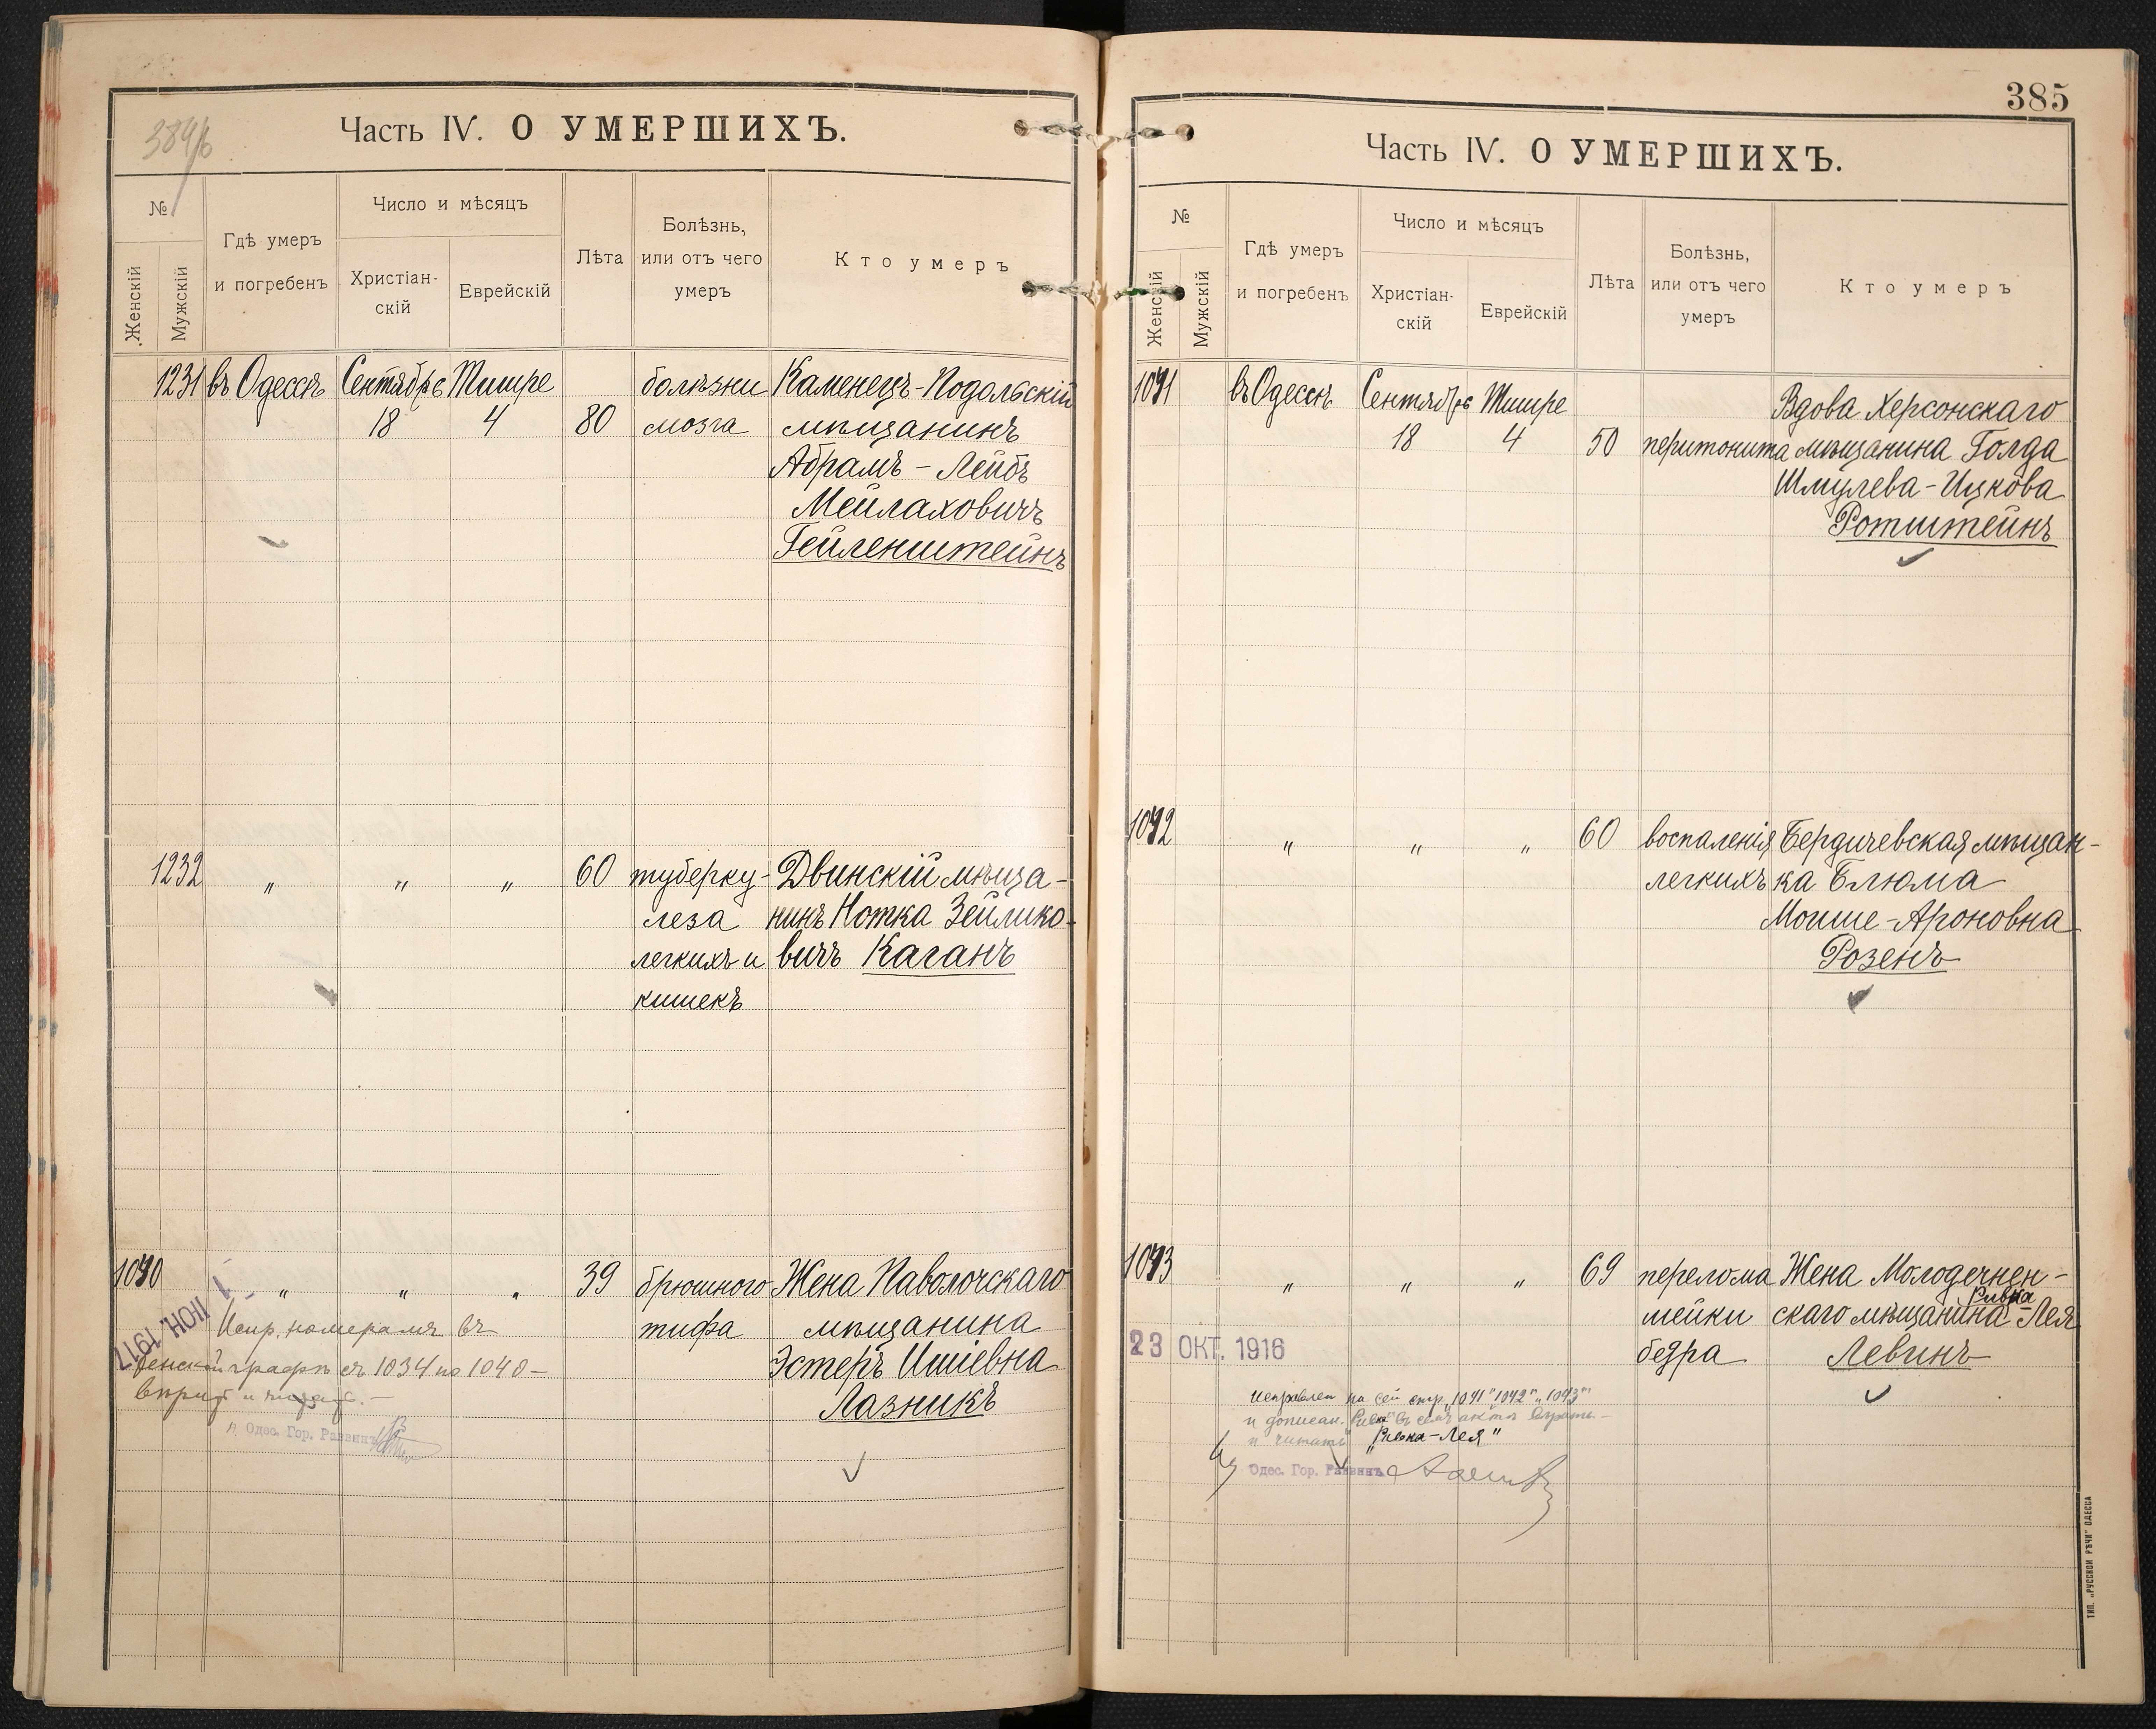 384/б
Часть IV. О УМЕРШИХЪ.
№
Женскій
Мужскій
Гдѣ умеръ
и погребенъ
Число и мѣсяцъ
Христіан-
скій
Еврейскій
Лѣта
Болѣзнь,
или отъ чего
умеръ
Кто умеръ
1231 въ Одессѣ Сентябрѣ Тишре болѣзни Каменецъ-Подольскій
18 4 80 мозга мѣщанинъ
Абрамъ-Лейбъ
Мейлаховичъ
Гейленштейнъ
1232 " " " 60 туберку- Двинскій мѣща-
леза нинъ Нотка Зейлико-
легкихъ и вичъ Каганъ
кишекъ
1040 " " " 39 брюшного Жена Паволочскаго
тифа мѣщанина
Эстеръ Ишіевна
Лазникъ
1 ІЮН. 1917
Испр. номерами въ
женской графѣ съ 1034 по 1040 -
Одес. Гор. Раввинъ
385
Часть IV. О УМЕРШИХЪ.
№
Женскій
Мужскій
Гдѣ умеръ
и погребенъ
Число и мѣсяцъ
Христіан-
скій
Еврейскій
Лѣта
Болѣзнь,
или отъ чего
умеръ
Кто умеръ
1041 въ Одессѣ Сентябрѣ Тишре Вдова Херсонскаго
18 4 50 перитонита мѣщанина Голда
Шмулева-Ицкова
Ротштейнъ
1042 " " " 60 воспаленія Бердичевская мѣщан-
легкихъ ка Блюма
Моише-Ароновна
Розенъ
1043 " " " 69 перелома Жена Молодечнен-
Ривка
шейки скаго мѣщанина -Лея
бедра Левинъ
23 ОКТ. 1916
Исправлен на сей стр. "1041" "1042" "1043"
и дописан. "Ривка" въ семъ актѣ
и читать "Ривка-Лея"
Одес. Гор. Раввинъ
ТИП. „РУССКОЙ РѢЧИ" ОДЕССА